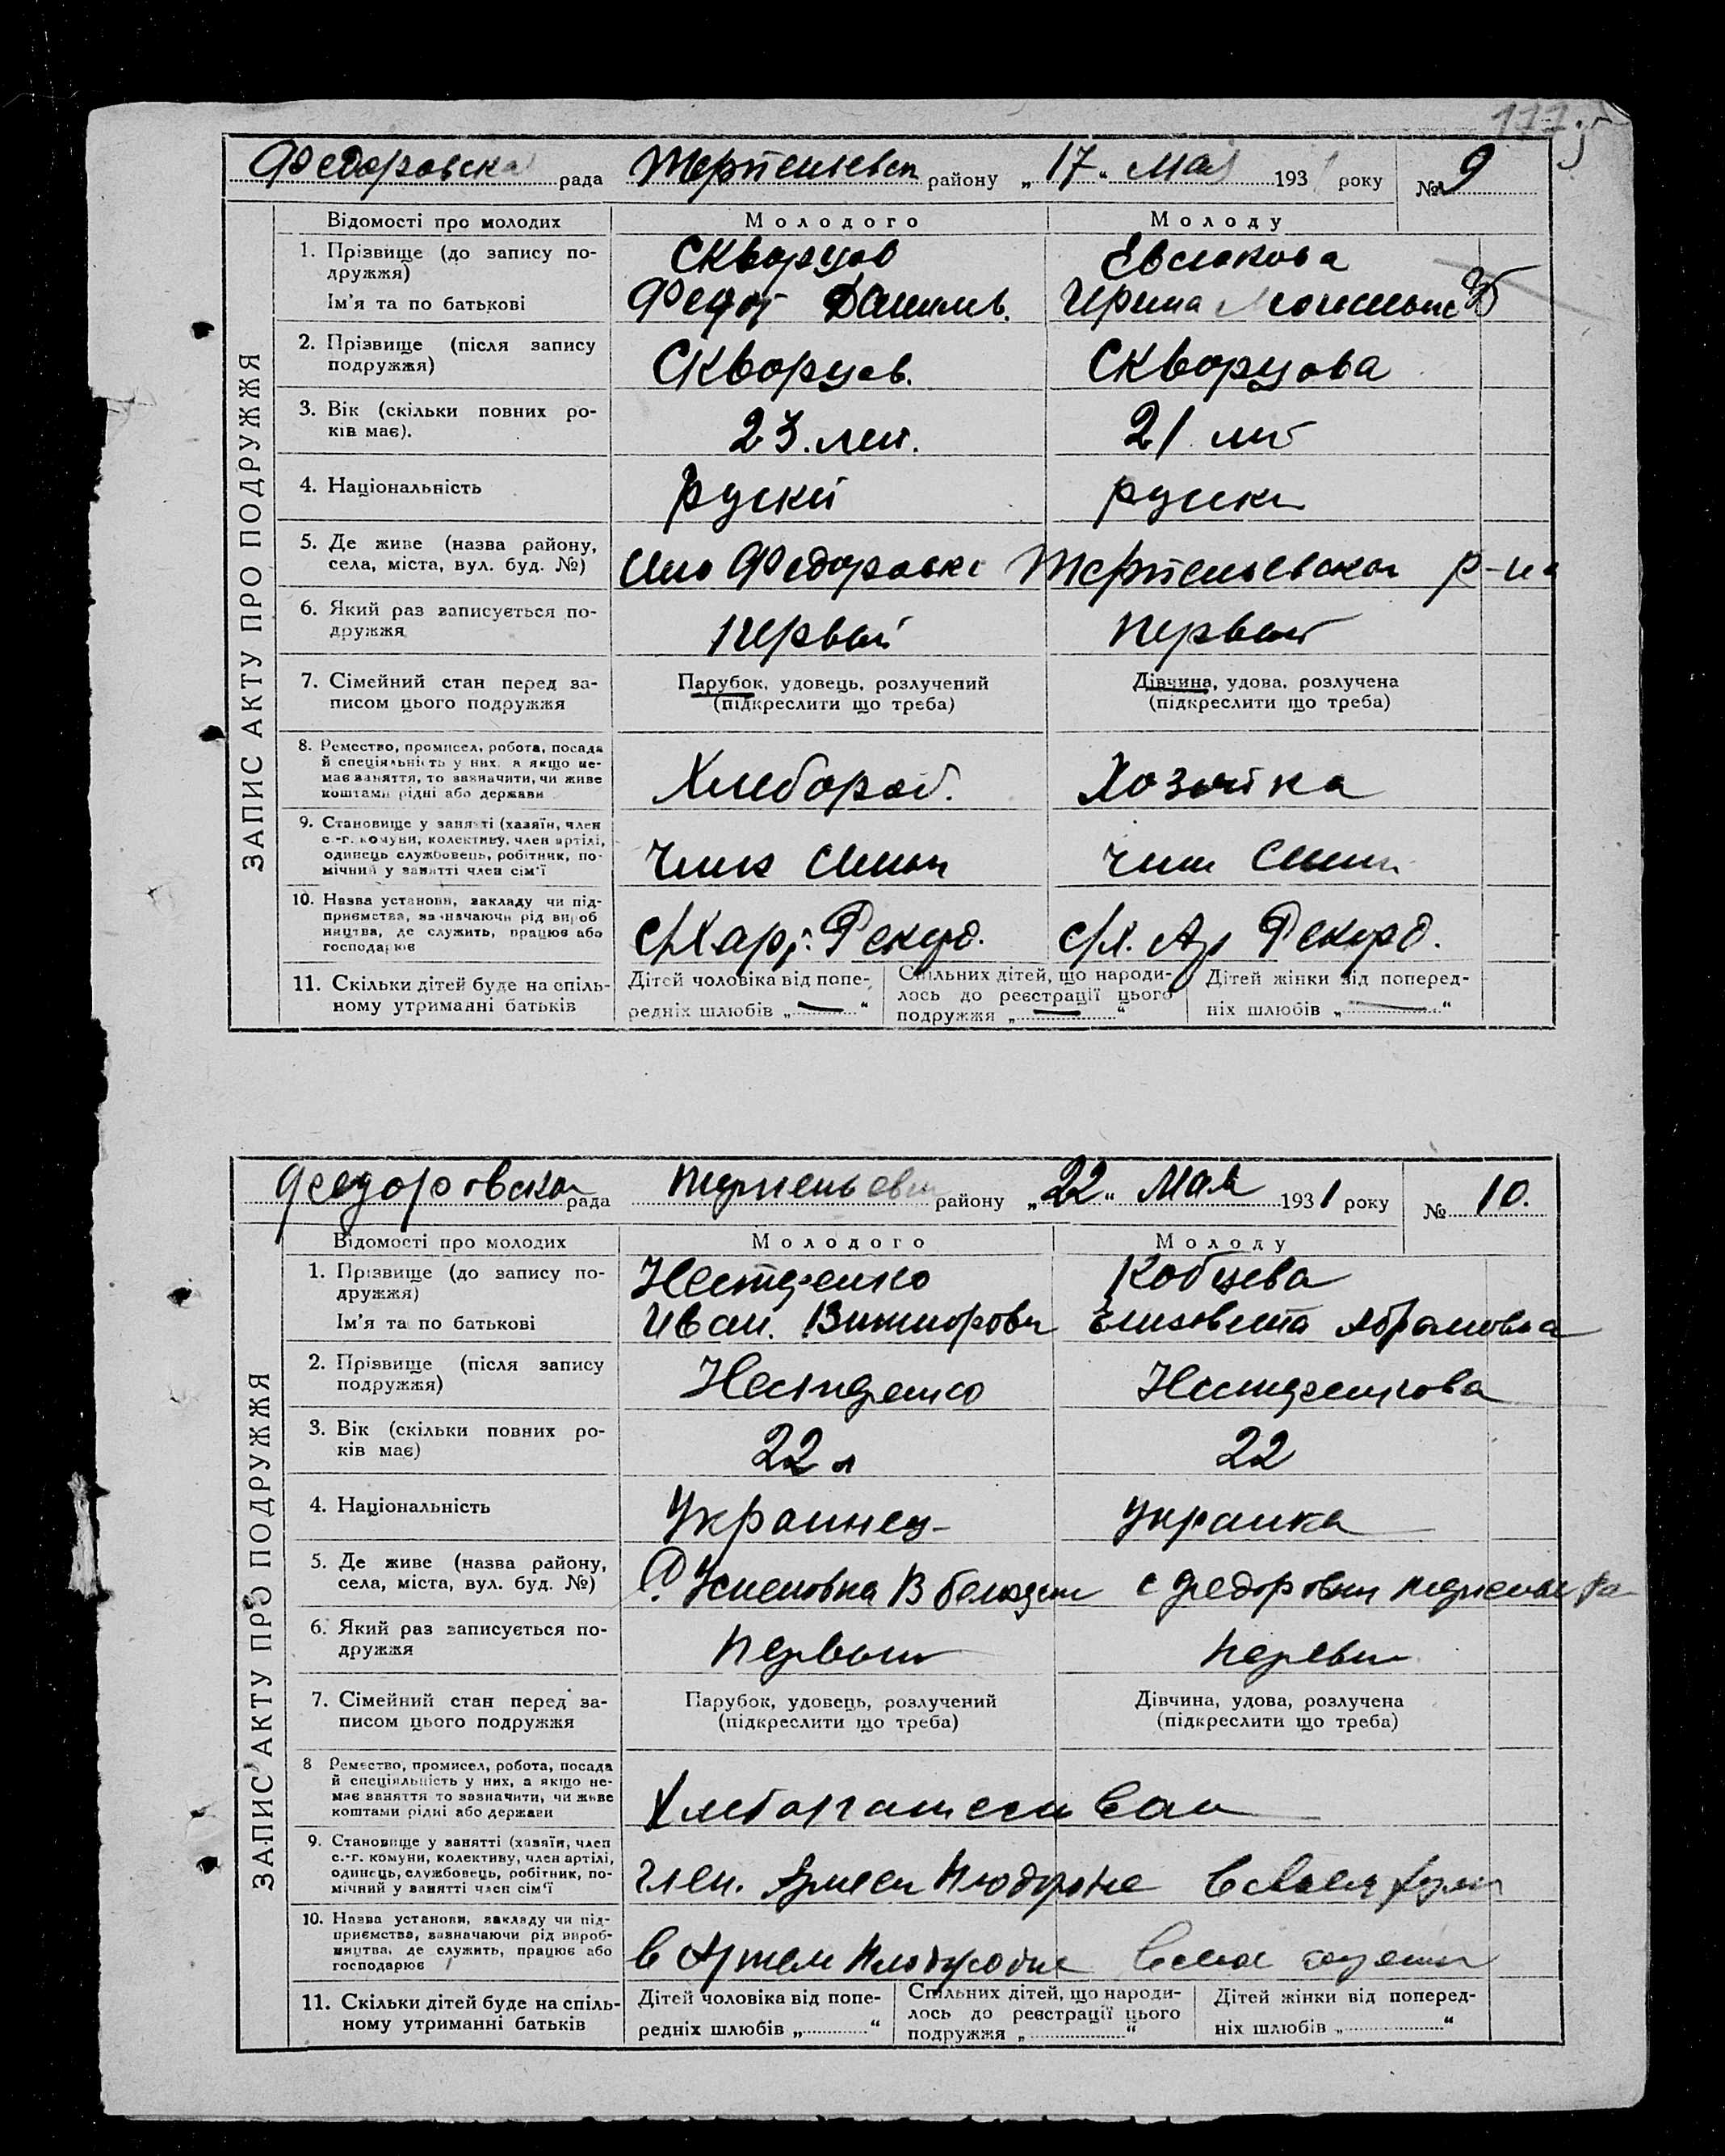 Федоровска рада Терпеньевск району „17“ Мая 1931 року № 9
ЗАПИС АКТУ ПРО ПОДРУЖЖЯ
Відомості про молодих Молодого Молоду
1. Прізвище (до запису по-
дружжя) Скворцов Евсюкова
Ім'я та по батькові Федот Данилов. Ирина
2. Прізвище (після запису
подружжя) Скворцов. Скворцова
3. Вік (скільки повних ро-
ків має). 23. лет. 21 лет
4. Національність руский руска
5. Де живе (назва району,
села, міста, вул. буд. №) Село Федоровке Терпеньевского р-на
6. Який раз записується по-
дружжя первый первый
7. Сімейний стан перед за-
писом цього подружжя
Парубок, удовець, розлучений
(підкреслити що треба)
Дівчина, удова, розлучена
(підкреслити що треба)
8. Ремество, промисел, робота, посада
й спеціяльність у них, а якщо не-
має заняття, то зазначити, чи живе
коштами рідні або держави Хлебороб. Хозяйка
9. Становище у занятті (хазяїн, член
с.-г. комуни, колективу, член артілі,
одинець службовець, робітник, по-
мічний у занятті член сім'ї Член Семьи член Семьи
10. Назва установи, закладу чи під-
приємства, зазначаючи рід вироб
ництва, де служить, працює або
господарює с/Х арт. Рекорд. с/х. Ар Рекорд.
11. Скільки дітей буде на спіль-
ному утриманні батьків
Дітей чоловіка від попе-
редніх шлюбів „—“
Спільних дітей, що народи-
лось до реєстрації цього
подружжя „—“
Дітей жінки від поперед-
ніх шлюбів „—“
Федоровска рада Терпеньевск району „22“ Мая 1931 року № 10.
ЗАПИС АКТУ ПРО ПОДРУЖЖЯ
Відомості про молодих Молодого Молоду
1. Прізвище (до запису по-
дружжя) Нестеренко Кобцева
Ім'я та по батькові Иван. Викторови Елизовета Абрамовна
2. Прізвище (після запису
подружжя) Нестеренко Нестеренкова
3. Вік (скільки повних ро-
ків має) 22 л 22
4. Національність Украинец Украинка
5. Де живе (назва району,
села, міста, вул. буд. №) С. Успеновка
6. Який раз записується по-
дружжя Первый Первый
7. Сімейний стан перед за-
писом цього подружжя
Парубок, удовець, розлучений
(підкреслити що треба)
Дівчина, удова, розлучена
(підкреслити що треба)
8 Ремество, промисел, робота, посада
й спеціяльність у них, а якщо не-
має заняття то зазначити, чи живе
коштами рідні або держави
9. Становище у занятті (хазяїн, член
с.-г. комуни, колективу, член артілі,
одинець, службовець, робітник, по-
мічний у занятті член сім'ї член.
10. Назва установи, закладу чи під-
приємства, зазначаючи рід вироб-
ництва, де служить, працює або
господарює в Артели
11. Скільки дітей буде на спіль-
ному утриманні батьків
Дітей чоловіка від попе-
редніх шлюбів „.....“
Спільних дітей, що народи-
лось до реєстрації цього
подружжя „.....“
Дітей жінки від поперед-
ніх шлюбів „.....“